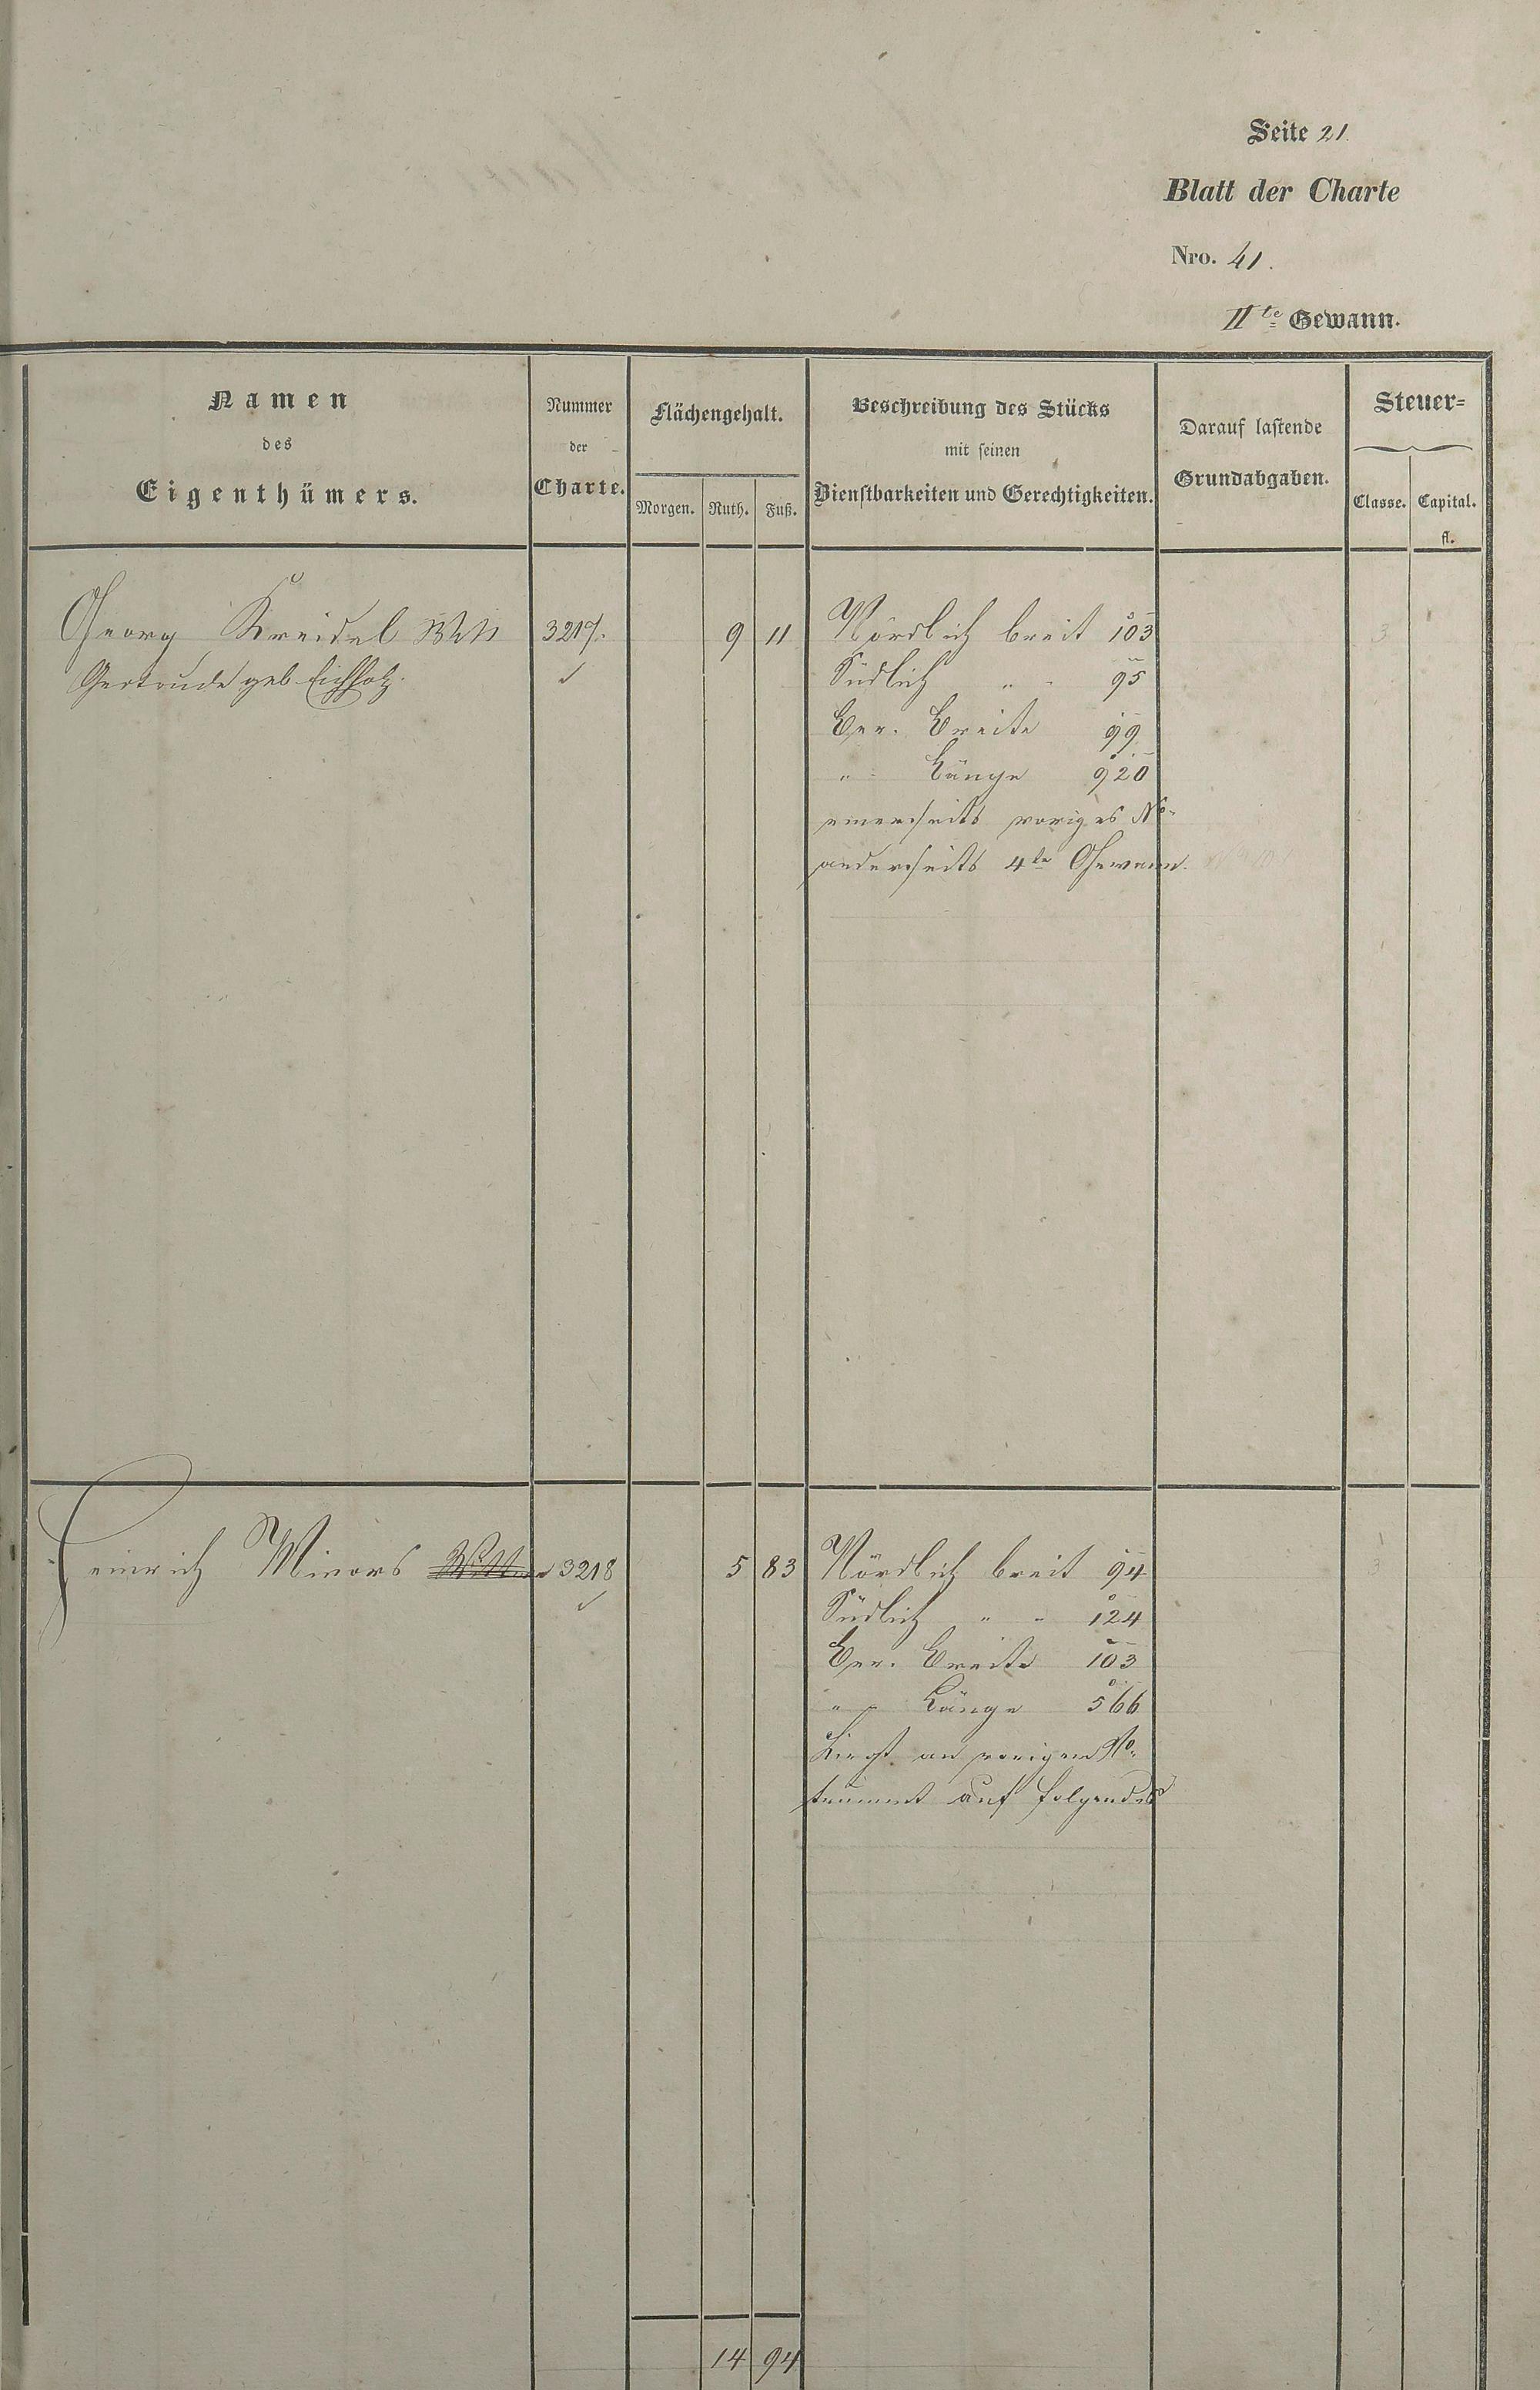 Seite 21.
Blatt der Charte
Nro. 41.
II te Gewann.
Namen
des
Eigenthümers.
Nummer
der
Charte.
Flächengehalt.
Morgen. Ruth. Fuß.
Beschreibung des Stücks
mit seinen
Dienstbarkeiten und Gerechtigkeiten.
Darauf lastende
Grundabgaben.
Steuer=
Classe. Capital.
fl.
Georg Kreidel Wtb 3217. 9 11 Nördlich breit 103 3
Gertrude geb. Eichholz. Südlich " - 95
Ber. Breite 99
" - Länge 920
einerseits voriges No.
anderseits 4te Gewann.
Heinrich Minors 3218 5 83 Nördlich breit 94 3
Südlich " - 124
Ber. Breite 103
" - Länge 566
Liegt an vorigem No.
auf folgendes
14 94